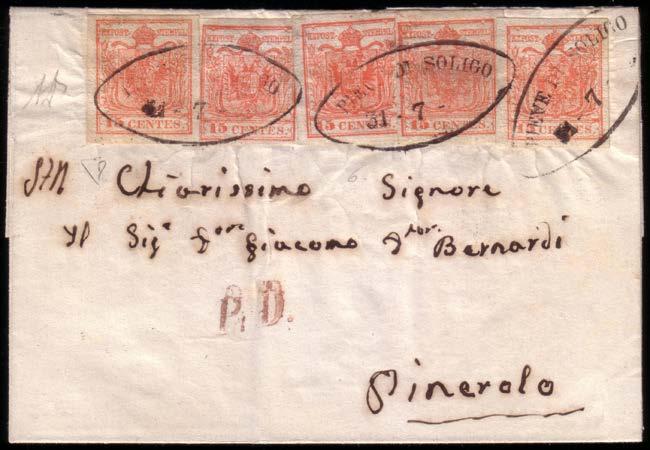 KKPOST-STEMPEL KKPOST-STEMPEL KKPOST-STEMPEL KKPOST-STEMPEL KKPOST-STEMPEL
15 CENTES. 15 CENTES. 15 CENTES. 15 CENTES. 15 CENTES.
PIEVE DI SOLIGO
31-7
PIEVE DI SOLIGO
31-7
PIEVE DI SOLIGO
31-7
Chiarissimo Signore
Il Sigr Dore Giacomo Dtor. Bernardi
P. D.
Pinerolo